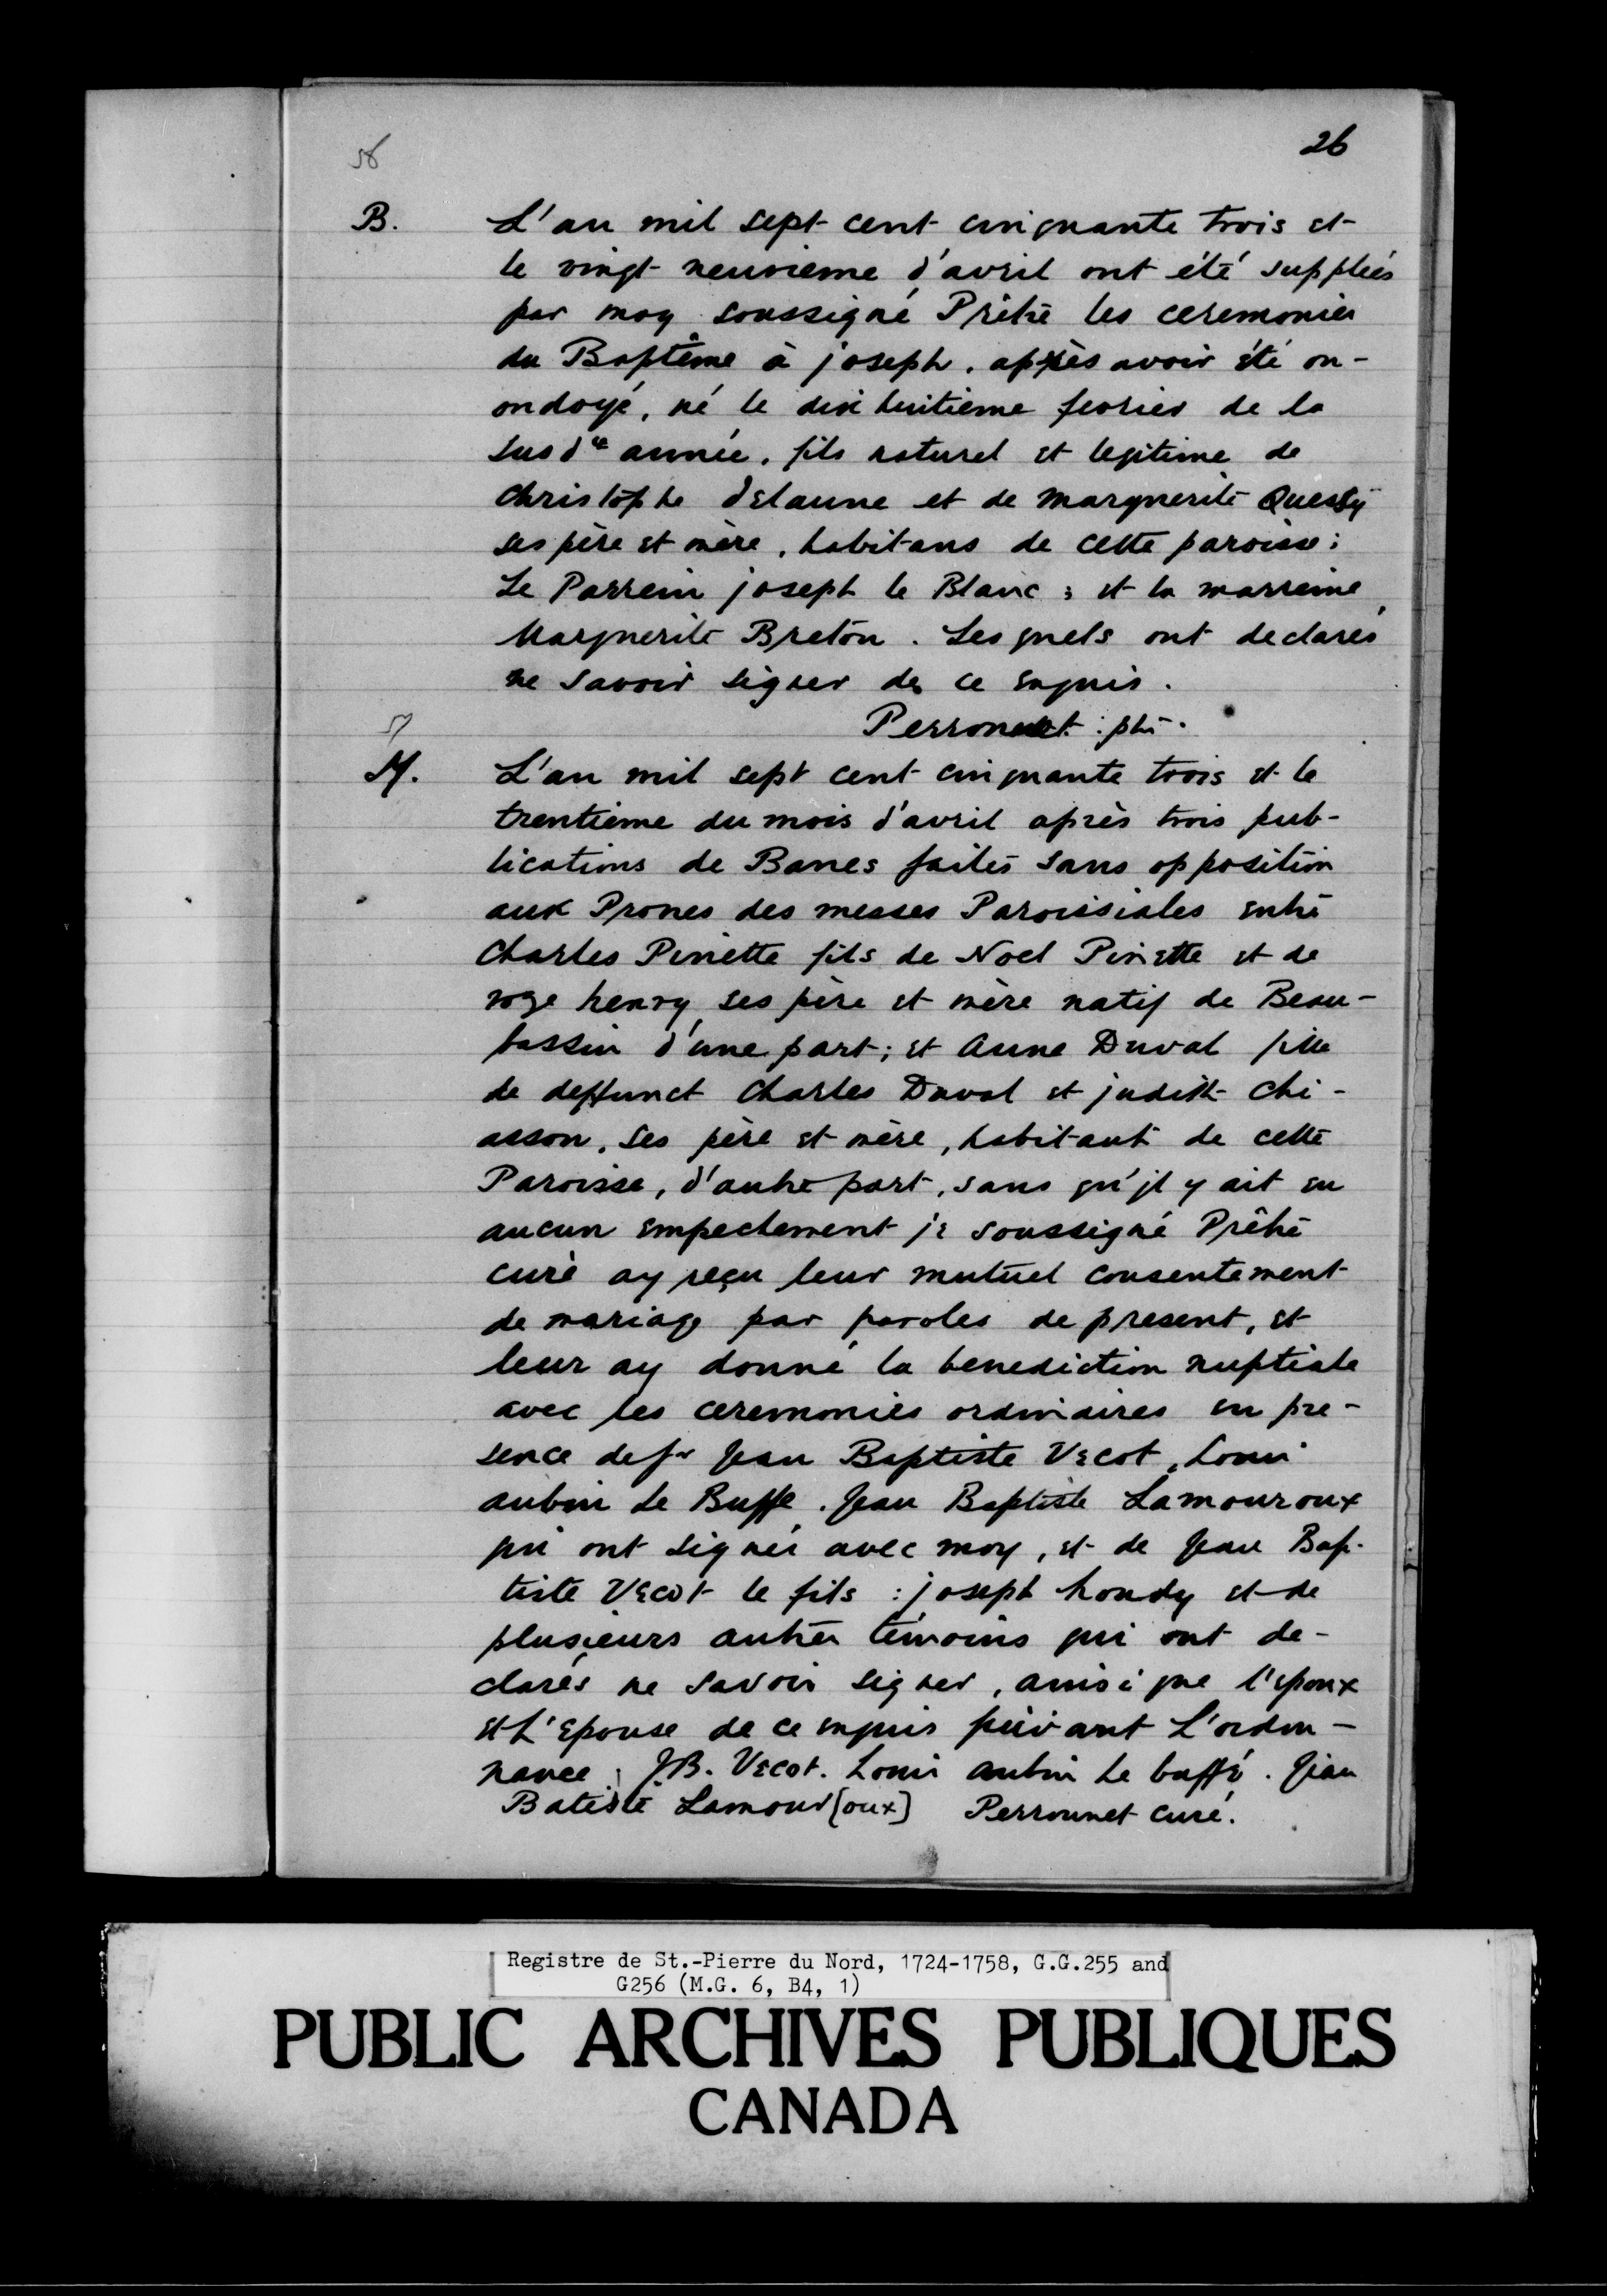 56
26
B. L'an mil sept cent cinquante trois et
le vingt neuvieme d'avril ont été suppléés
par moy soussigné Prêtre les ceremonies
du Baptême à joseph, après avoir été on-
ondoyé, né le dix huitième fevrier de la
susdte année, fils naturel et legitime de
Christophe delaune et de marguerite Quessy
ses père et mère, habitans de cette paroisse:
Le Parrein joseph le Blanc; et la marreine
Marguerite Breton. Lesquels ont declarés
ne savoir signer de ce enquis.
Perronnet: ptre.
57
M. L'an mil sept cent cinquante trois et le
trentième du mois d'avril après trois pub-
lications de Banes faites sans opposition
aux Prones des messes Paroissiales entre
Charles Pinette fils de Noel Pinette et de
roze henry ses père et mère natif de Beau-
bassin d'une part; et Anne Duval fille
de deffunct Charles Duval et judith Chi-
asson, ses père et mère, habitant de cette
Paroisse, d'autre part, sans qu'jl y ait eu
aucun empechement je soussigné Prêtre
curé ay reçu leur mutuel consentement
de mariage par paroles de present, et
leur ay donné la benediction nuptiale
avec les ceremonies ordinaires en pre-
sence de sr Jean Baptiste Vecot, Louis
aubin Le Buffe. Jean Baptiste Lamouroux
qui ont signés avec moy, et de Jean Bap-
tiste Vecot le fils: joseph houdy et de
plusieurs autres témoins qui ont de-
clarés ne savoir signer, ainsi que l'epoux
et L'Epouse de ce enquis suivant L'ordon-
nance; JB. Vecot. Louis aubin Le buffé. Jean
Batiste Lamour[oux] Perronnet curé.
Registre de St.-Pierre du Nord, 1724-1758, G.G.255 and
G256 (M.G. 6, B4, 1)
PUBLIC ARCHIVES PUBLIQUES
CANADA